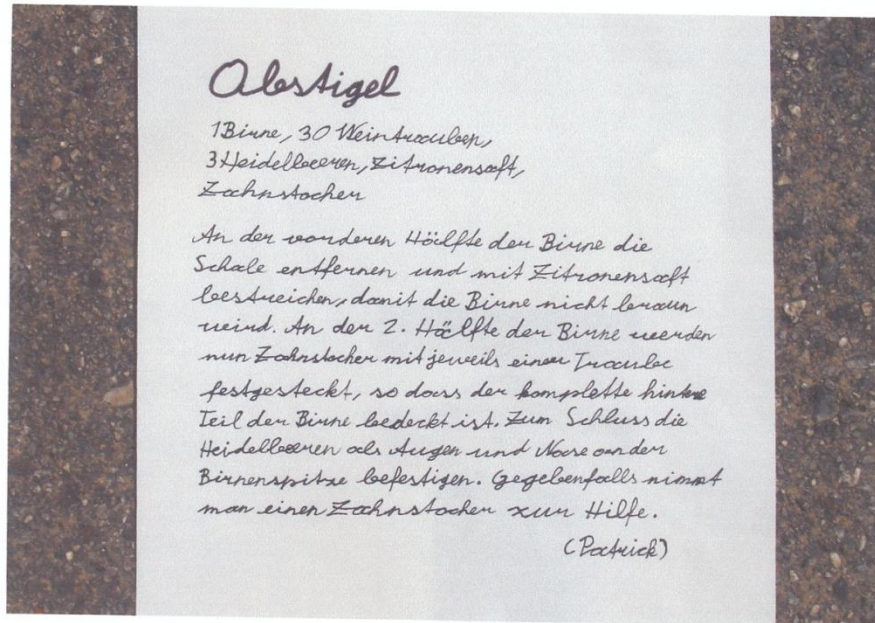 Obstigel
1 Birne, 30 Weintrauben,
3 Heidelbeeren, Zitronensaft,
Zahnstocher
An der vorderen Hälfte der Birne die
Schale entfernen und mit Zitronensaft
bestreichen, damit die Birne nicht braun
wird. An der 2. Hälfte der Birne werden
nun Zahnstocher mit jeweils einer Traube
festgesteckt, so dass der komplette hintere
Teil der Birne bedeckt ist. Zum Schluss die
Heidelbeeren als Augen und Nase an der
Birnenspitze befestigen. Gegebenfalls nimmt
man einen Zahnstocher zur Hilfe.
(Patrick)